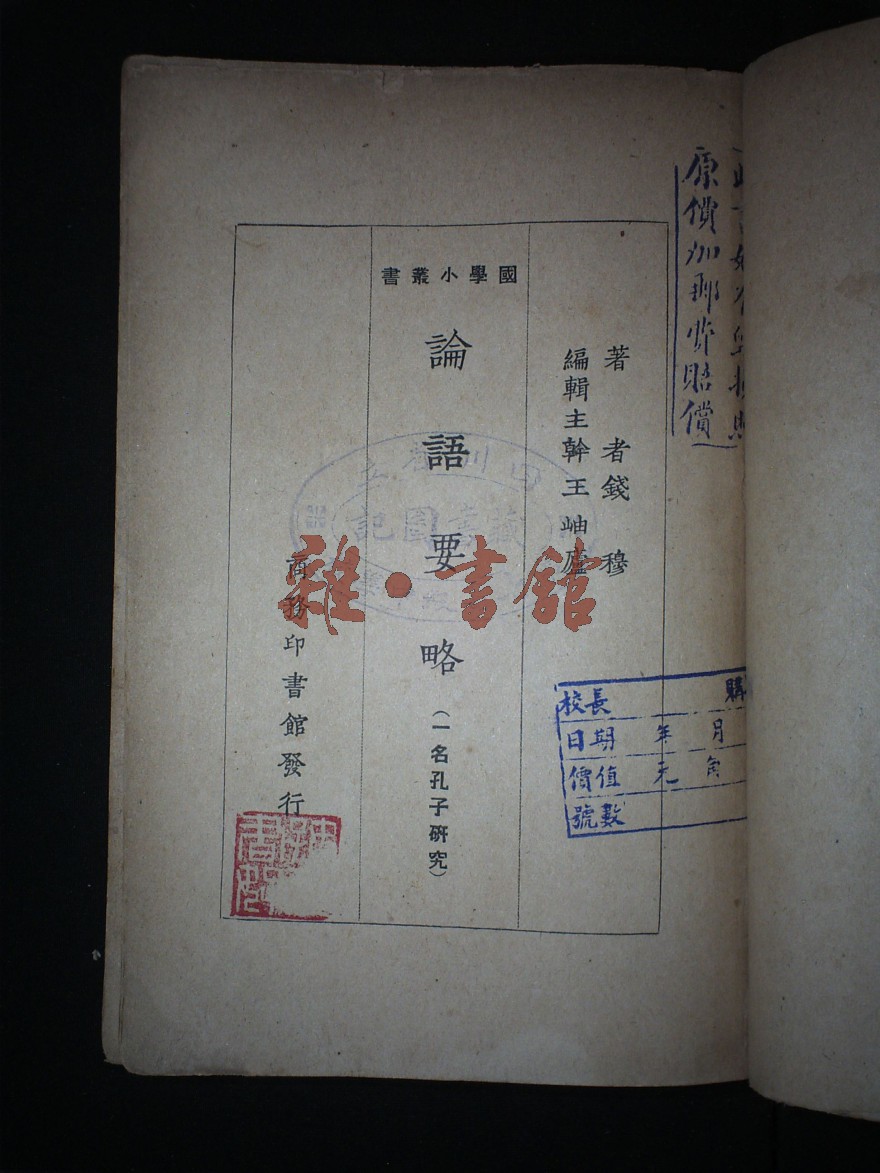 原價加郵費賠償
國學小叢書
著者錢穆
編輯主幹王岫廬
論語要略
(一名孔子研究)
商務印書館發行
藏書圖記
雜·書館
校長 購
日期 年 月
價值 元 角
號數